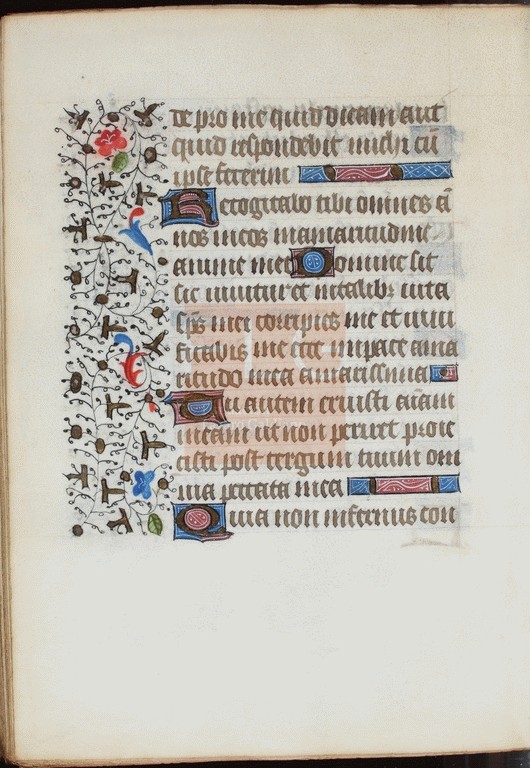 te pro me quid dicam aut
quid respondebit michi cū
ipse fecerim
Recogitabo tibi omnes ā
nos meos in amaritudine
anime mee Domine sit
sic vivitur et in talibꝫ vita
sp̄s mei corripies me et vivi
ficabis me ecce in pace ama
ritudo mea amarissima
Tu autem eruisti aīam
meam ut non periret proie
cisti post tergum tuum om
nia peccata mea
Quia non infernus con